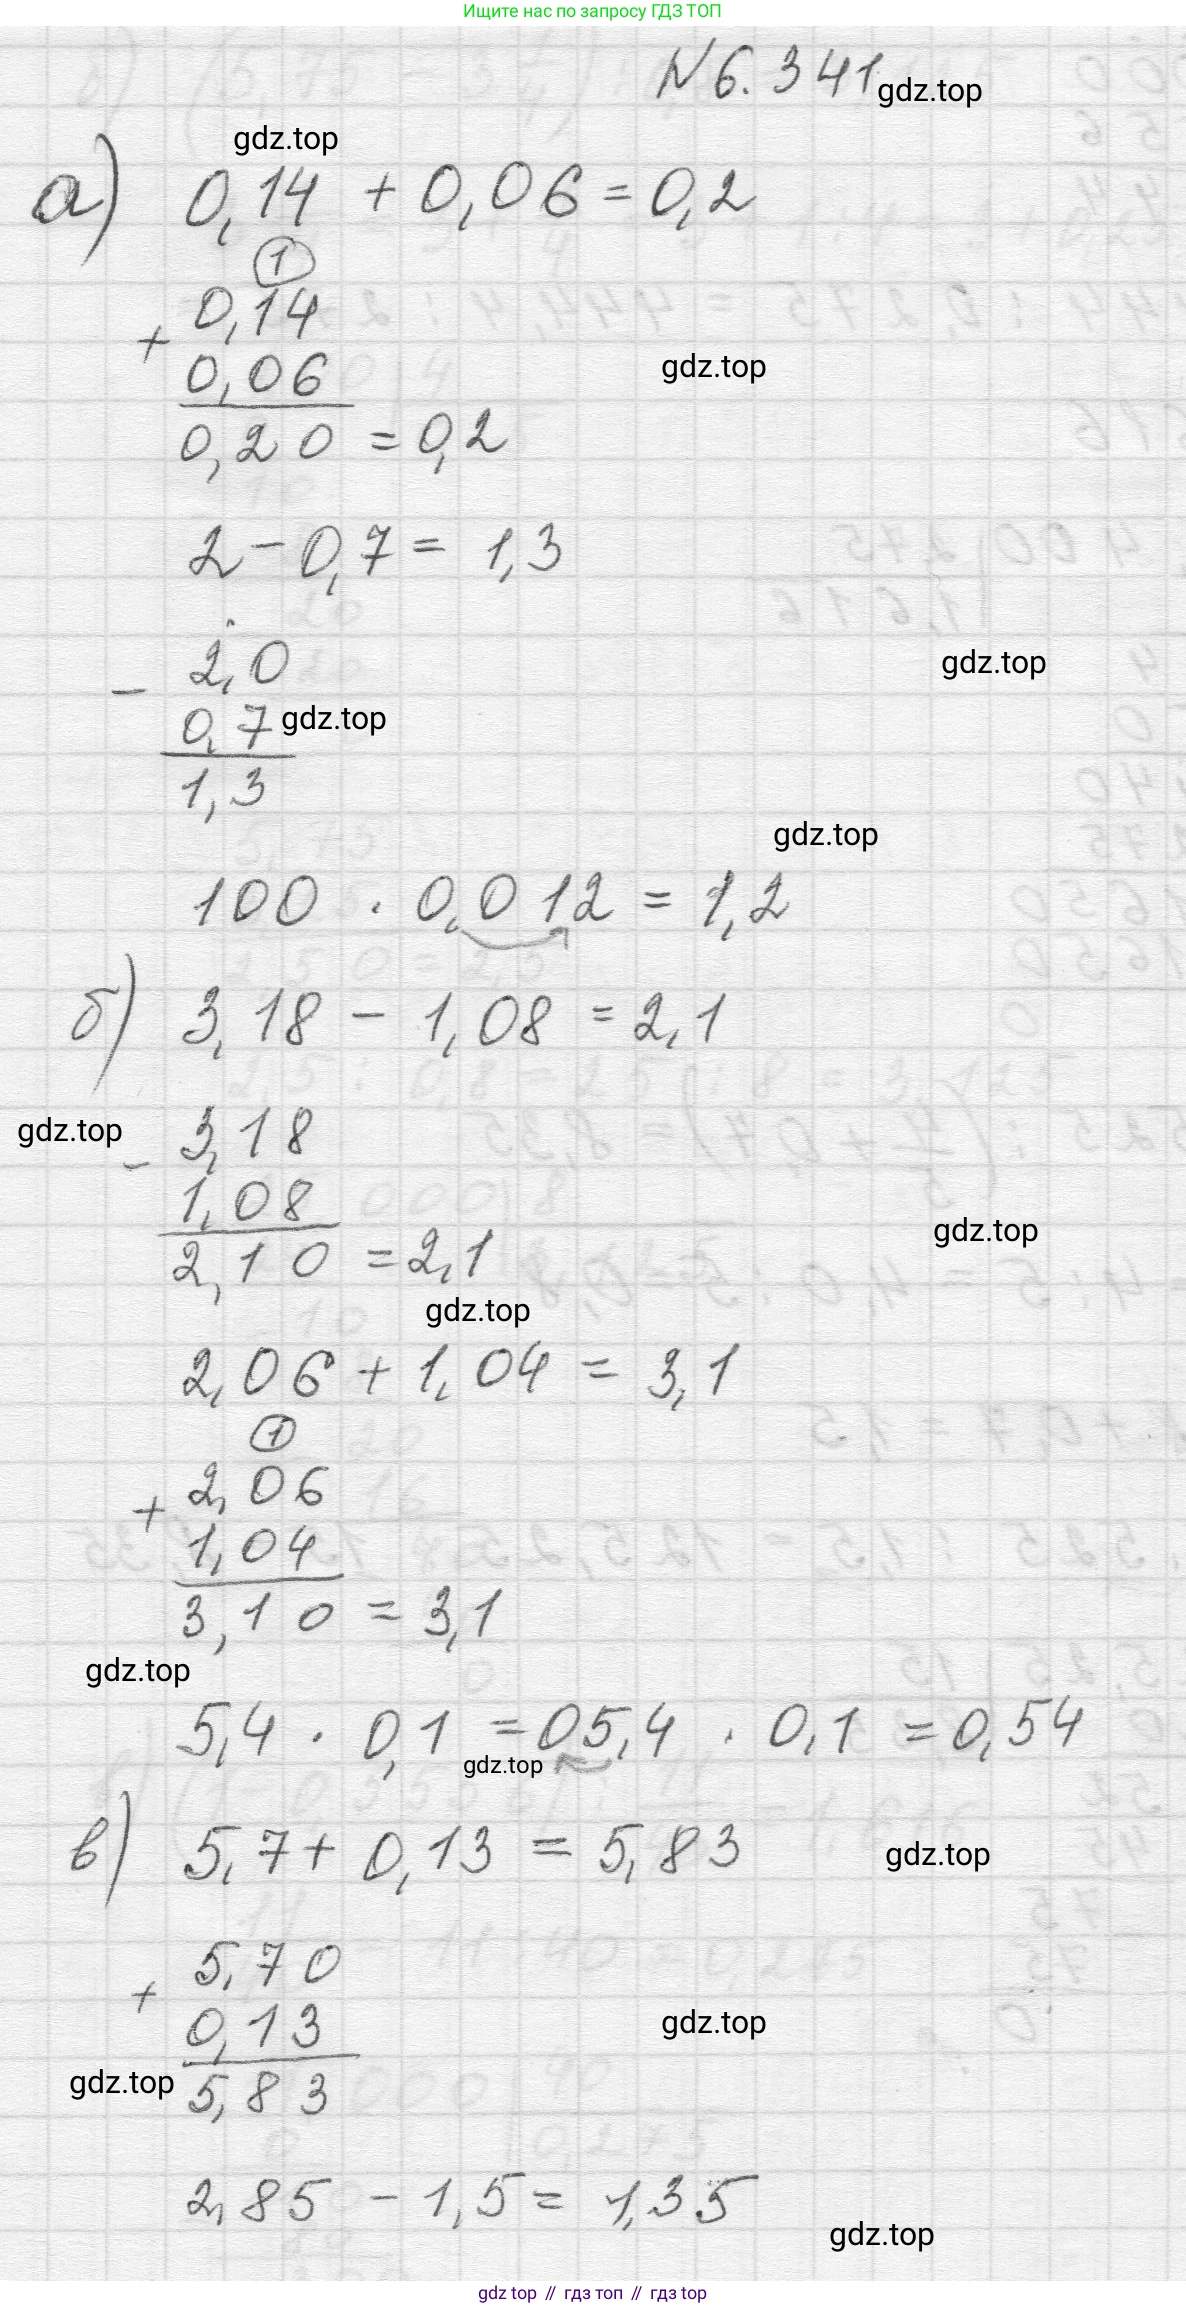 Ищите нас по запросу ГДЗ ТОП
N 6.341
gdz.top
gdz.top
а) 0,14 + 0,06 = 0,2
1
0,14
+
0,06
gdz.top
0,20 = 0,2
2 - 0,7 = 1,3
2,0
gdz.top
-
0,7
gdz.top
1,3
gdz.top
100 · 0,012 = 1,2
б) 3,18 - 1,08 = 2,1
gdz.top
3,18
-
1,08
gdz.top
2,10 = 2,1
gdz.top
2,06 + 1,04 = 3,1
1
2,06
+
1,04
3,10 = 3,1
gdz.top
5,4 · 0,1 = 05,4 · 0,1 = 0,54
gdz.top
в) 5,7 + 0,13 = 5,83
gdz.top
5,70
+
0,13
gdz.top
gdz.top
5,83
2,85 - 1,5 = 1,35
gdz.top
gdz top // гдз топ // гдз top